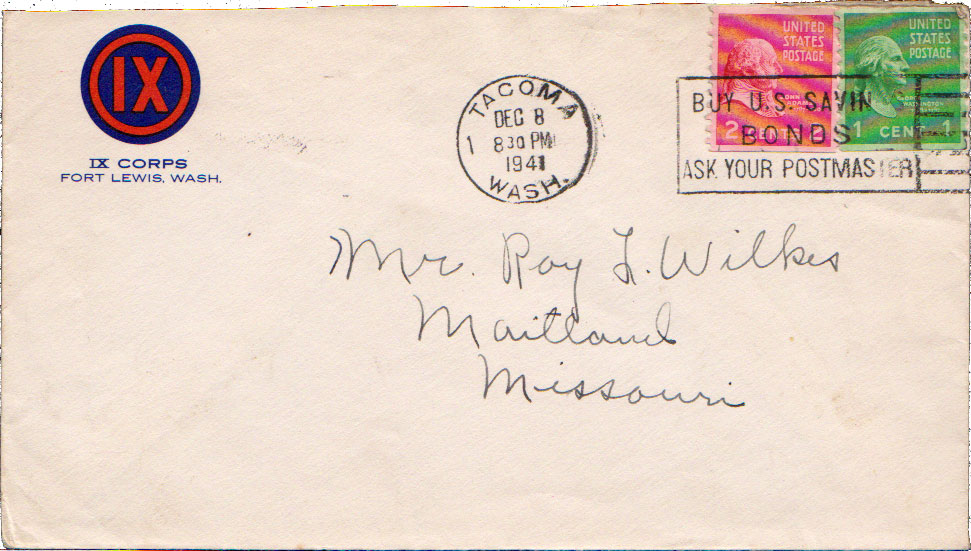 IX
IX CORPS
FORT LEWIS, WASH.
TACOMA
DEC 8
1 8 30 PM
1941
WASH.
BUY U.S. SAVIN
BONDS
ASK YOUR POSTMASTER
UNITED
STATES
POSTAGE
JOHN
ADAMS
2 CENTS
UNITED
STATES
POSTAGE
WASHINGTON
1 CENT 1
Mr. Roy L. Wilkes
Maitland
Missouri